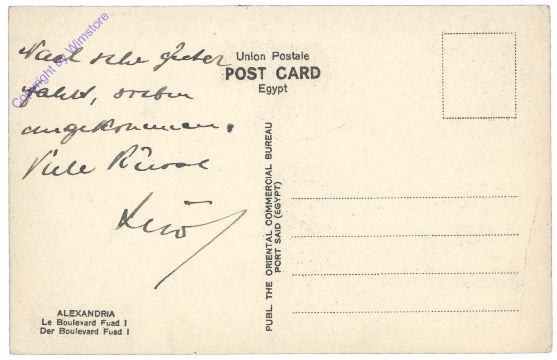 Nach sehr guter
Fahrt, soeben
angekommen.
Viele Grüsse
Copyright by Wimstore
Union Postale
POST CARD
Egypt
PUBL. THE ORIENTAL COMMERCIAL BUREAU
PORT SAID (EGYPT)
ALEXANDRIA
Le Boulevard Fuad I
Der Boulevard Fuad I